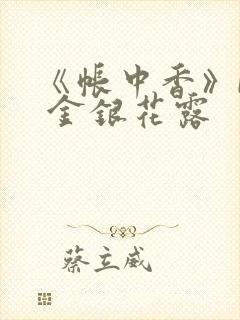 《帐中香》
金银花露
蔡立威